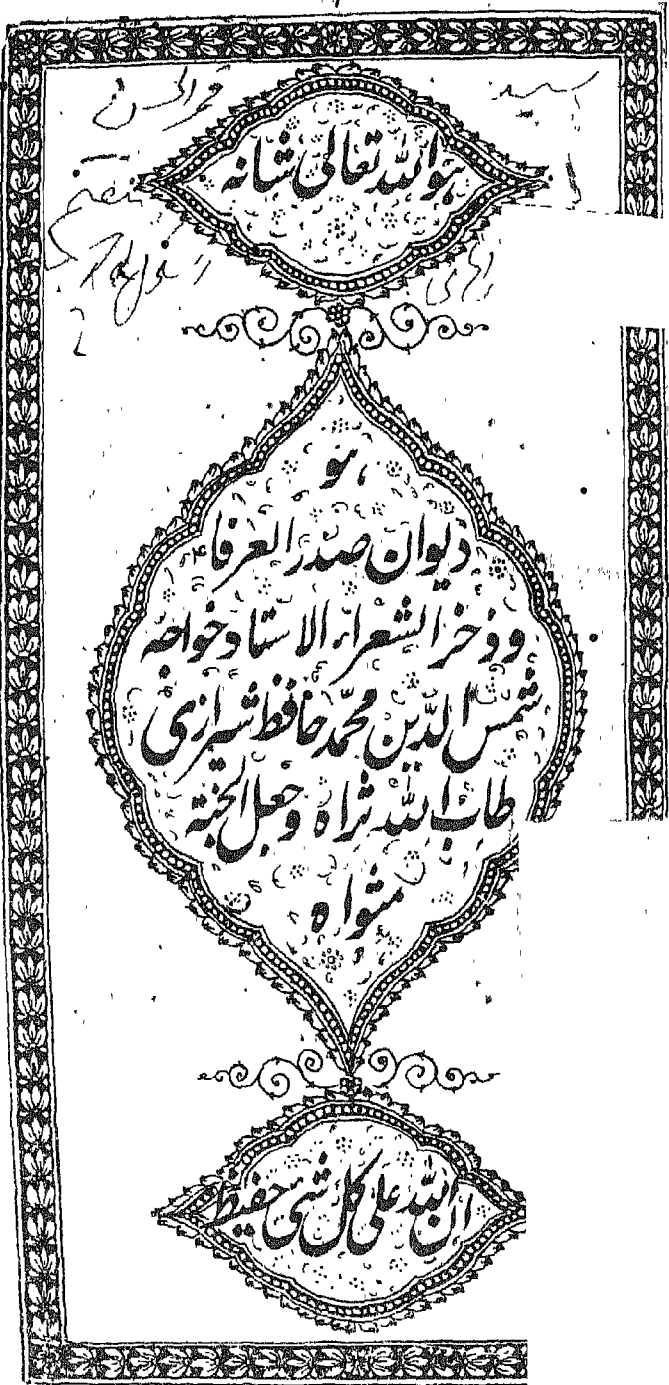 هو الله تعالی شانه
هو
دیوان صدر العرفاء
و ذخر الشعراء الاستاد خواجه
شمس الدین محمد حافظ شیرازی
طاب الله ثراه و جعل الجنة
مثواه
ان الله علی کل شیء حفیظ